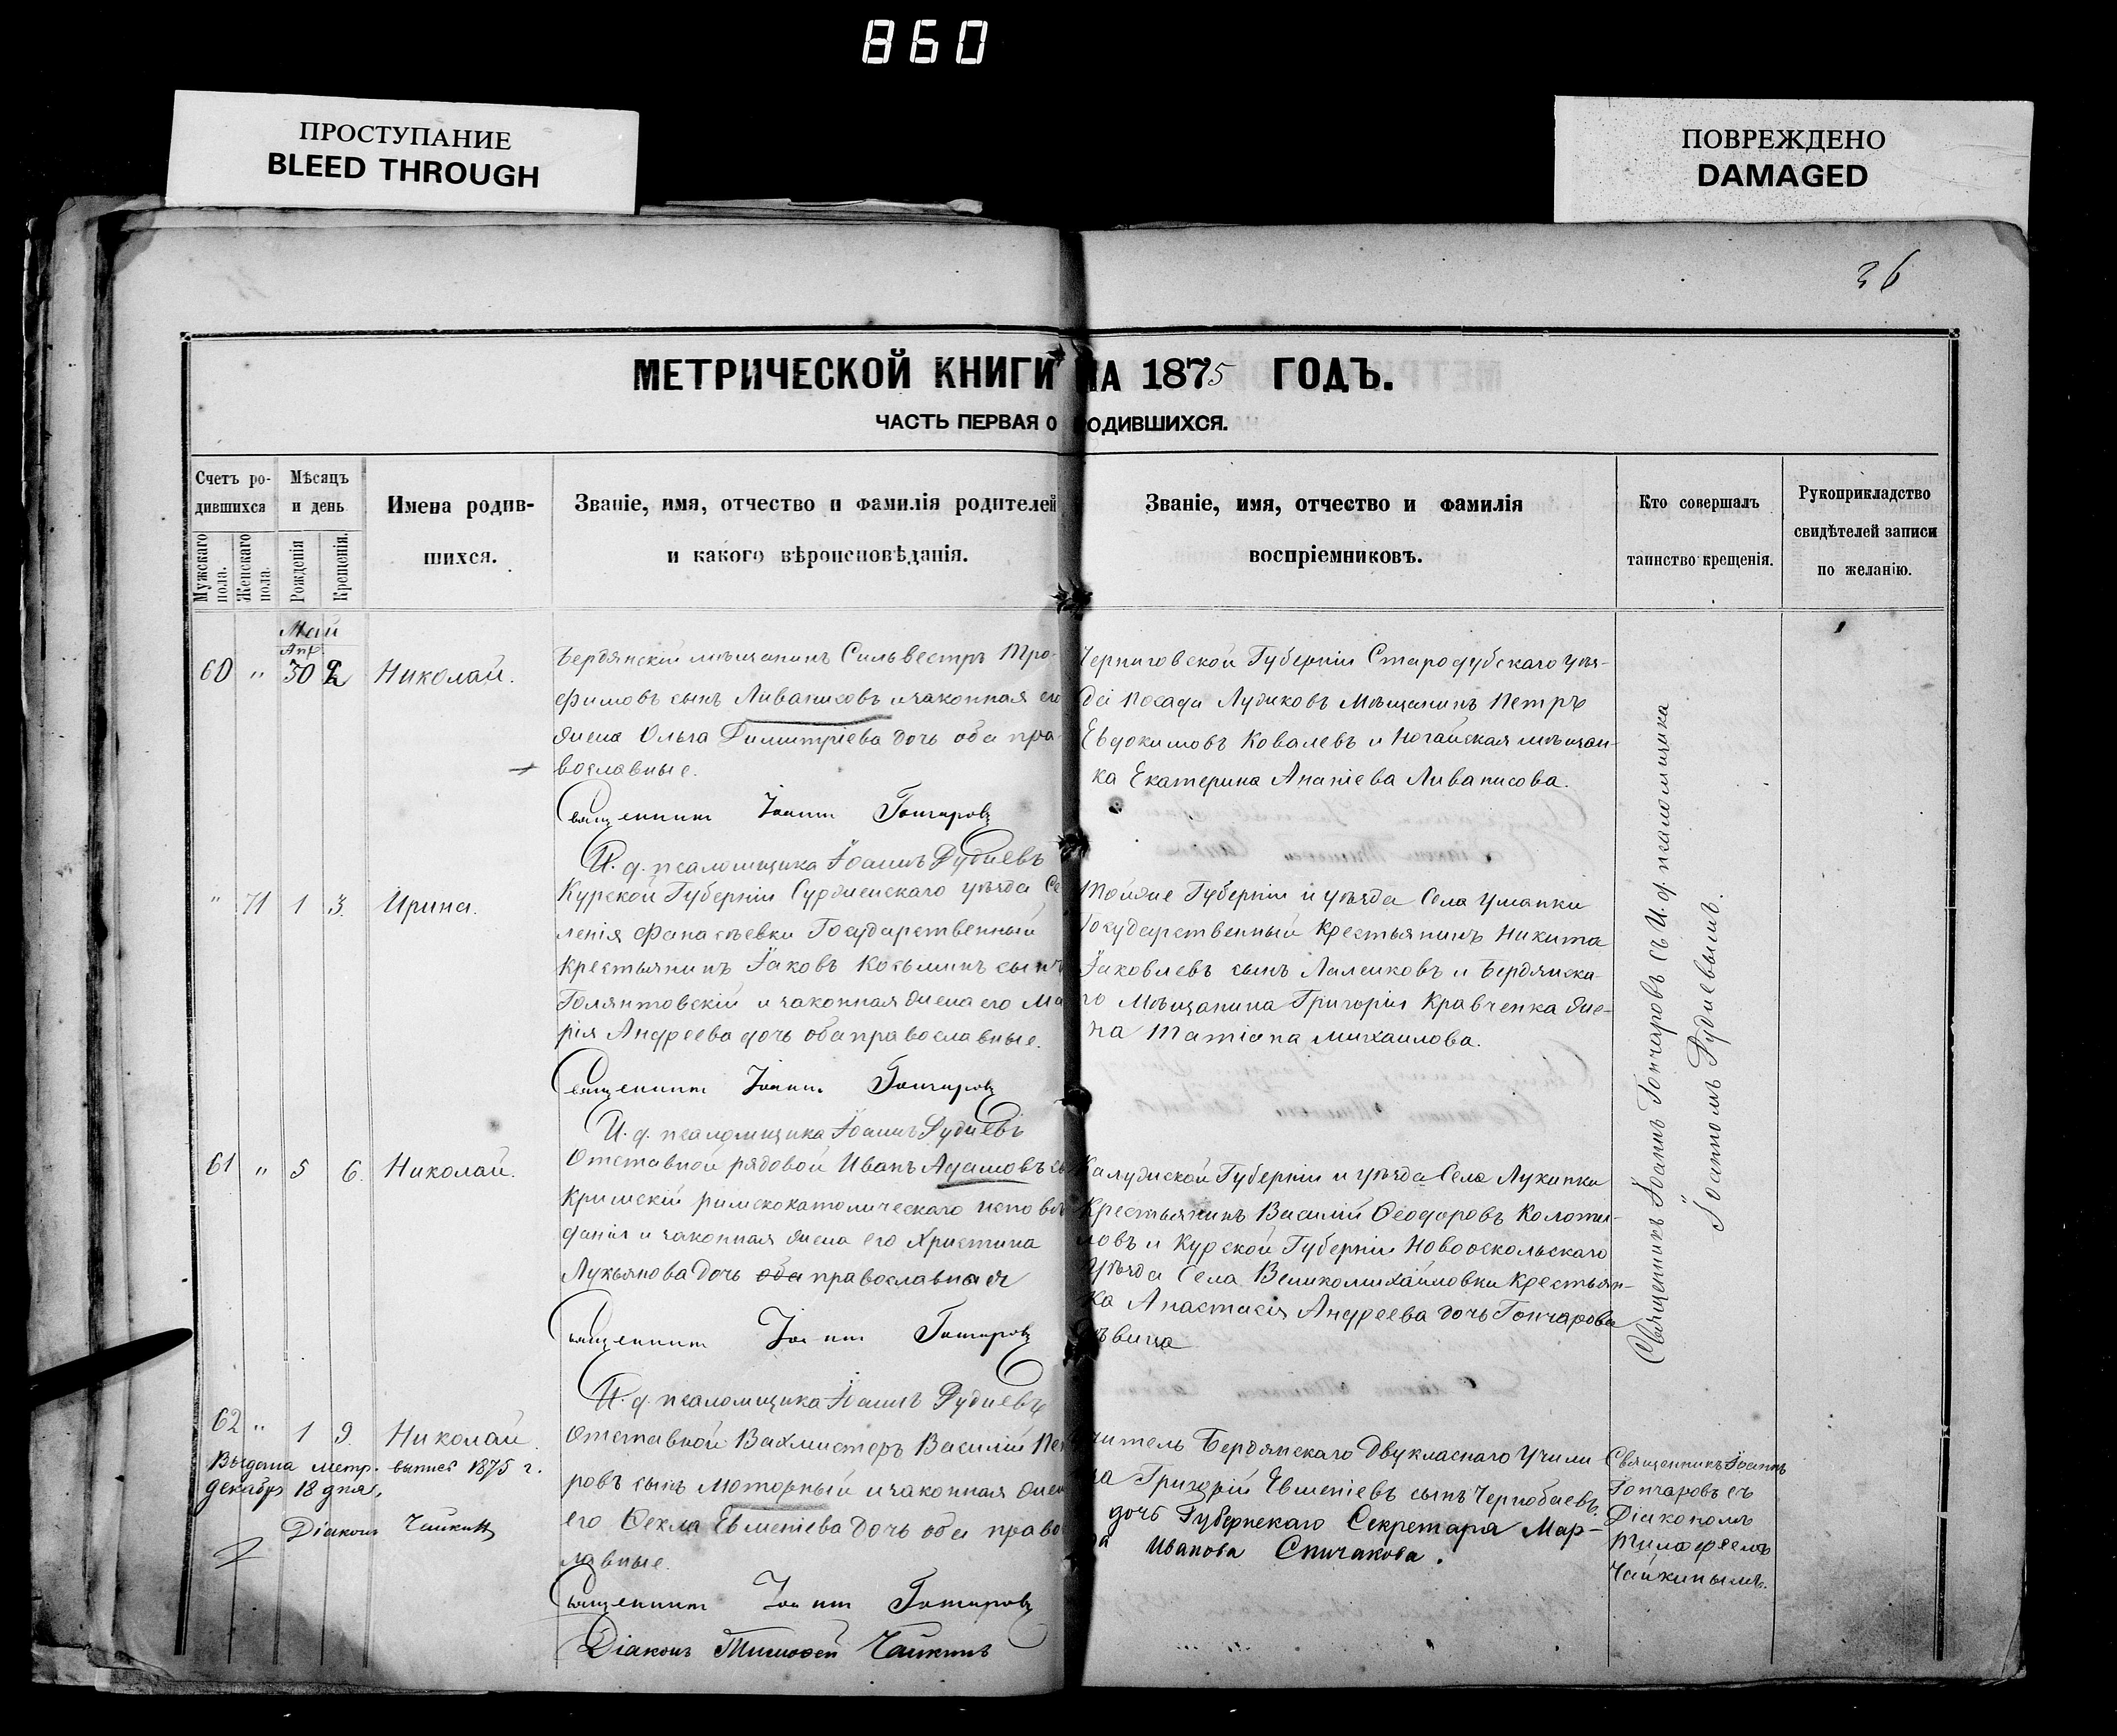 860
ПРОСТУПАНИЕ
BLEED THROUGH
ПОВРЕЖДЕНО
DAMAGED
36
МЕТРИЧЕСКОЙ КНИГИ НА 1875 ГОДЪ.
ЧАСТЬ ПЕРВАЯ О РОДИВШИХСЯ.
Счетъ ро-
дившихся
Мужскаго пола.
Женскаго пола.
Мѣсяцъ
и день
Рожденія
Крещенія.
Имена родив-
шихся.
Званіе, имя, отчество и фамилія родителей
и какого вѣроисповѣданія.
Званіе, имя, отчество и фамилія
воспріемниковъ.
Кто совершалъ
таинство крещенія.
Рукоприкладство
свидѣтелей записи
по желанію.
Май
Апр.
60 " 30 2 Николай.
Бердянскій мѣщанинъ Сильвестръ Тро-
фимовъ сынъ Ливанисовъ и законная его
жена Ольга Димитріева дочь оба пра-
вославные.
Священник Іоанн Гончаровъ
И. д. псаломщика Іоаннъ Рудиевъ
Черниговской Губерніи Стародубскаго уѣз-
да Посада Лужковъ Мѣщанинъ Петръ
Евдокимовъ Ковалевъ и Ногайская мѣщан-
ка Екатерина Ананіева Ливанисова.
" 71 1 3. Ирина.
Курской Губерніи Суджанскаго уѣзда Се
ленія Фанасѣевки Государственный
Крестьянинъ Іаковъ Козьминъ сынъ
Голянтовскій и законная жена его Ма
рія Андреева дочь оба православные.
Священник Іоанн Гончаровъ
И. д. псаломщика Іоаннъ Рудиевъ
Тойже Губерніи и уѣзда Села Уланки
Государственный Крестьянинъ Никита
Іаковлевъ сынъ Лаленковъ и Бердянска-
го Мѣщанина Григорія Кравченка же-
на Татіана Михаилова.
61 " 5 6. Николай.
Отставной рядовой Иванъ Адамовъ сы
Кришскій римскокатолическаго исповѣ
данія и законная жена его Христина
Лукьянова дочь оба православная
Священник Іоанн Гончаровъ
И. д. псаломщика Іоаннъ Рудиевъ
Калужской Губерніи и уѣзда Села Лукинки
Крестьянинъ Василій Ѳеодоровъ Колоти-
ловъ и Курской Губерніи Новооскольскаго
Уѣзда Села Великомихайловки Крестьян-
ка Анастасія Андреева дочь Гончарова
Священникъ Іоаннъ Гончаровъ съ И. д. псаломщика
Іоаномъ Рудиевымъ.
62 " 1 9. Николай.
Выдана метр. выпись 1875 г.
декабря 18 дня,
Діаконъ Чайкинъ
Отставной Вахмистеръ Василій Пет
ровъ сынъ Моторный и законная жен
его Ѳекла Евменіева дочь оба право
лавные.
Священник Іоанн Гончаровъ
Діаконъ Тимоѳей Чайкинъ
читель Бердянскаго Двукласнаго Учили
ща Григорій Евменіевъ сынъ Чернобаевъ
дочь Губернскаго Секретаря Мар-
а Иванова Спичакова.
Священникъ Іоаннъ
Гончаровъ съ
Діакономъ
Тимофеемъ
Чайкинымъ.